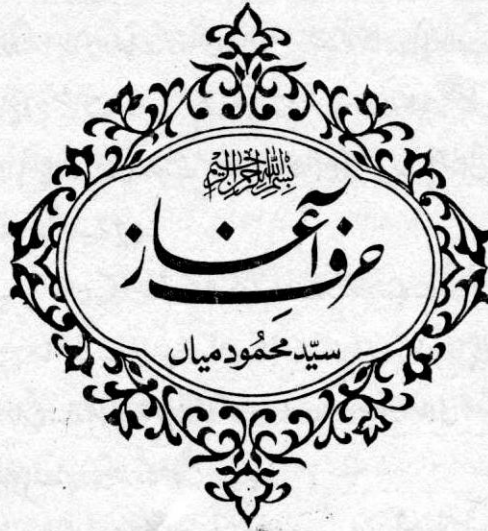 بسم الله الرحمن الرحیم
حرفِ آغاز
سیّد محمُود میاں